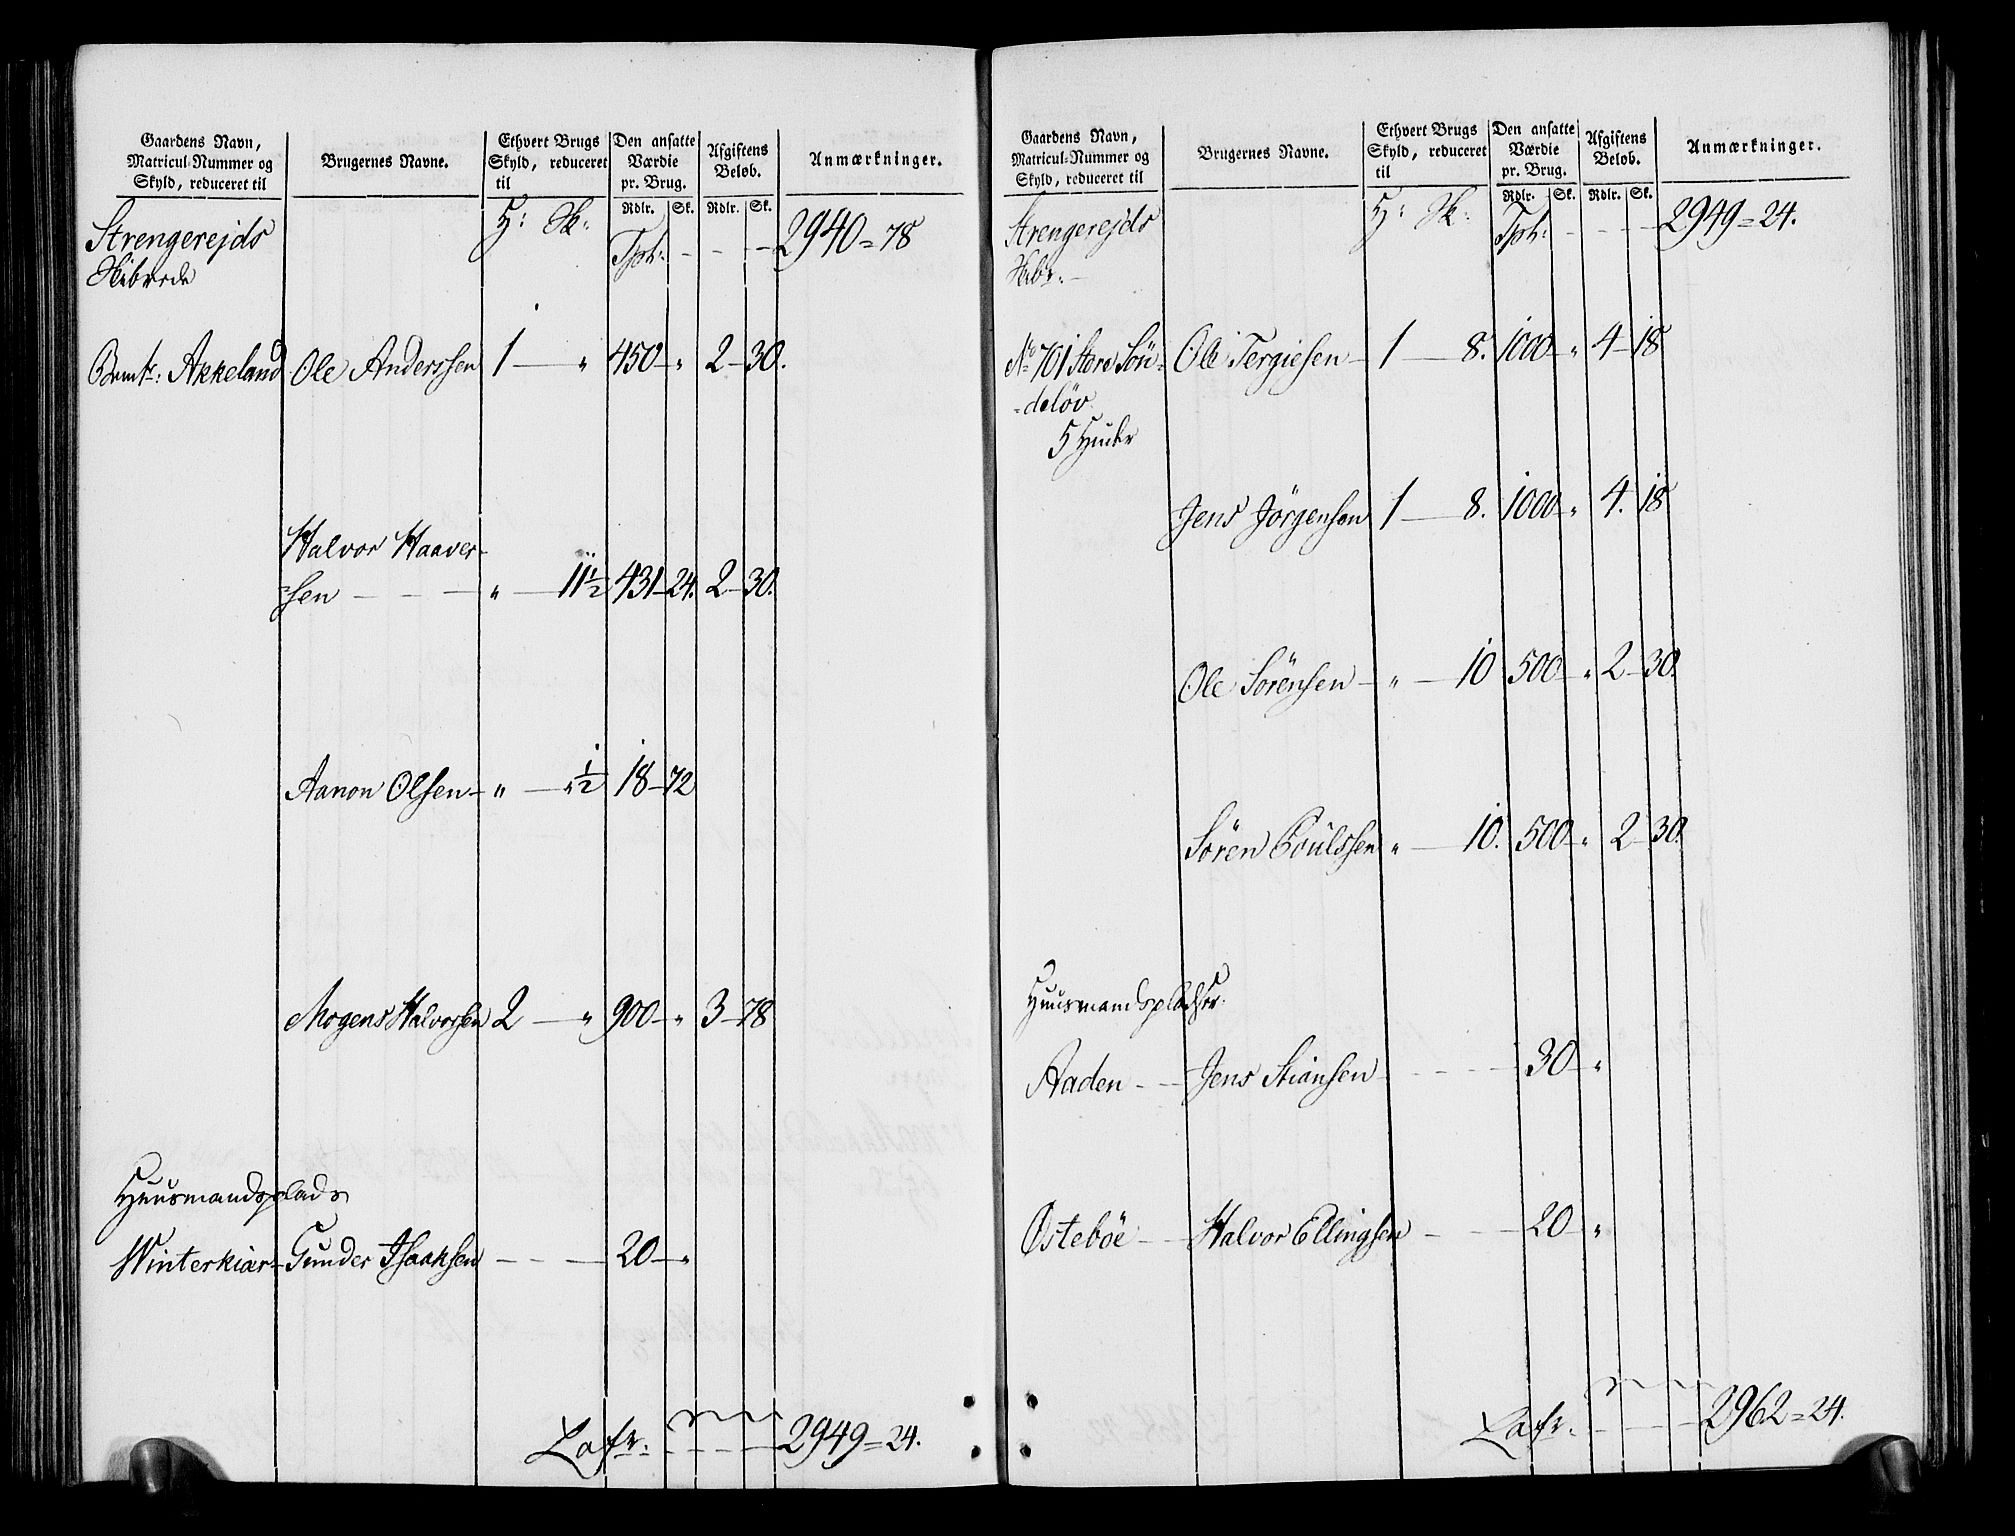 Gaardens Navn,
Matricul-Nummer og
Skyld, reduceret til
Brugernes Navne.
Ethvert Brugs
Skyld, reduceret
til
Den ansatte
Værdie
pr. Brug.
Afgiftens
Beløb.
Anmærkninger.
Rdlr. Sk. Rdlr. Sk.
Strengerejds H: Sk: Tpt: - - - 2940=78
Akkeland Ole Anderssen 1 — " 450 — " 2 — 30.
Halvor Haaver-
=sen — — — " — 11½ 431 — 24. 2 — 30.
Aanon Olsen — " — " ½ 18 — 72
Mogens Halvorsen 2 — " 900 — " 3 — 78
Huusmandsplads
Winterkiær — Gunder Isaaksen — — — 20 — "
Laf r: - - - 2949=24.
Gaardens Navn,
Matricul-Nummer og
Skyld, reduceret til
Brugernes Navne.
Ethvert Brugs
Skyld, reduceret
til
Den ansatte
Værdie
pr. Brug.
Afgiftens
Beløb.
Anmærkninger.
Rdlr. Sk. Rdlr. Sk.
Strengerejds H: Sk: Tpt: - - - 2949=24.
No 701 Store Sön= Ole Tergiesen — 1 — 8. 1000 — " 4 — 18
=deløv
5 Huder
Jens Jörgensen 1 — 8. 1000 — " 4. 18
Ole Sörensen — " — 10 500 — " 2 — 30.
Sören Poulssen " — 10. 500 — " 2 — 30.
Huusmandspladser.
Aaden — — Jens Stiansen — — — 30 — "
Østebøe — — Halvor Ellingsen — — — 20 — "
Laf r. - - - 2962=24.